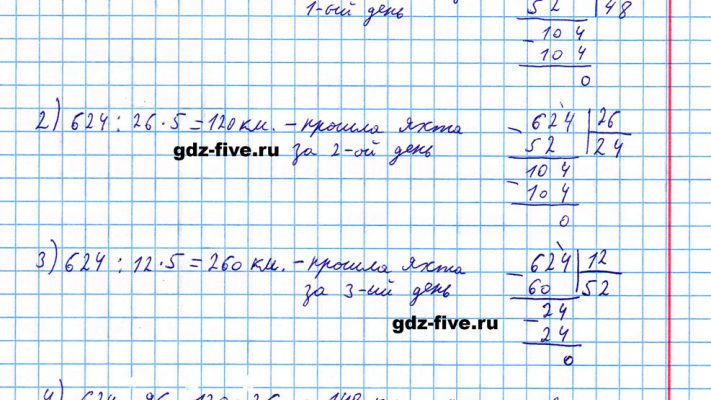 1-ый день
52 | 48
- 104
104
0
2) 624 : 26 · 5 = 120 км. – прошла яхта
за 2-ой день
gdz-five.ru
- 624 | 26
52 | 24
- 104
104
0
3) 624 : 12 · 5 = 260 км. – прошла яхта
за 3-ий день
gdz-five.ru
- 624 | 12
60 | 52
- 24
24
0
4) 624